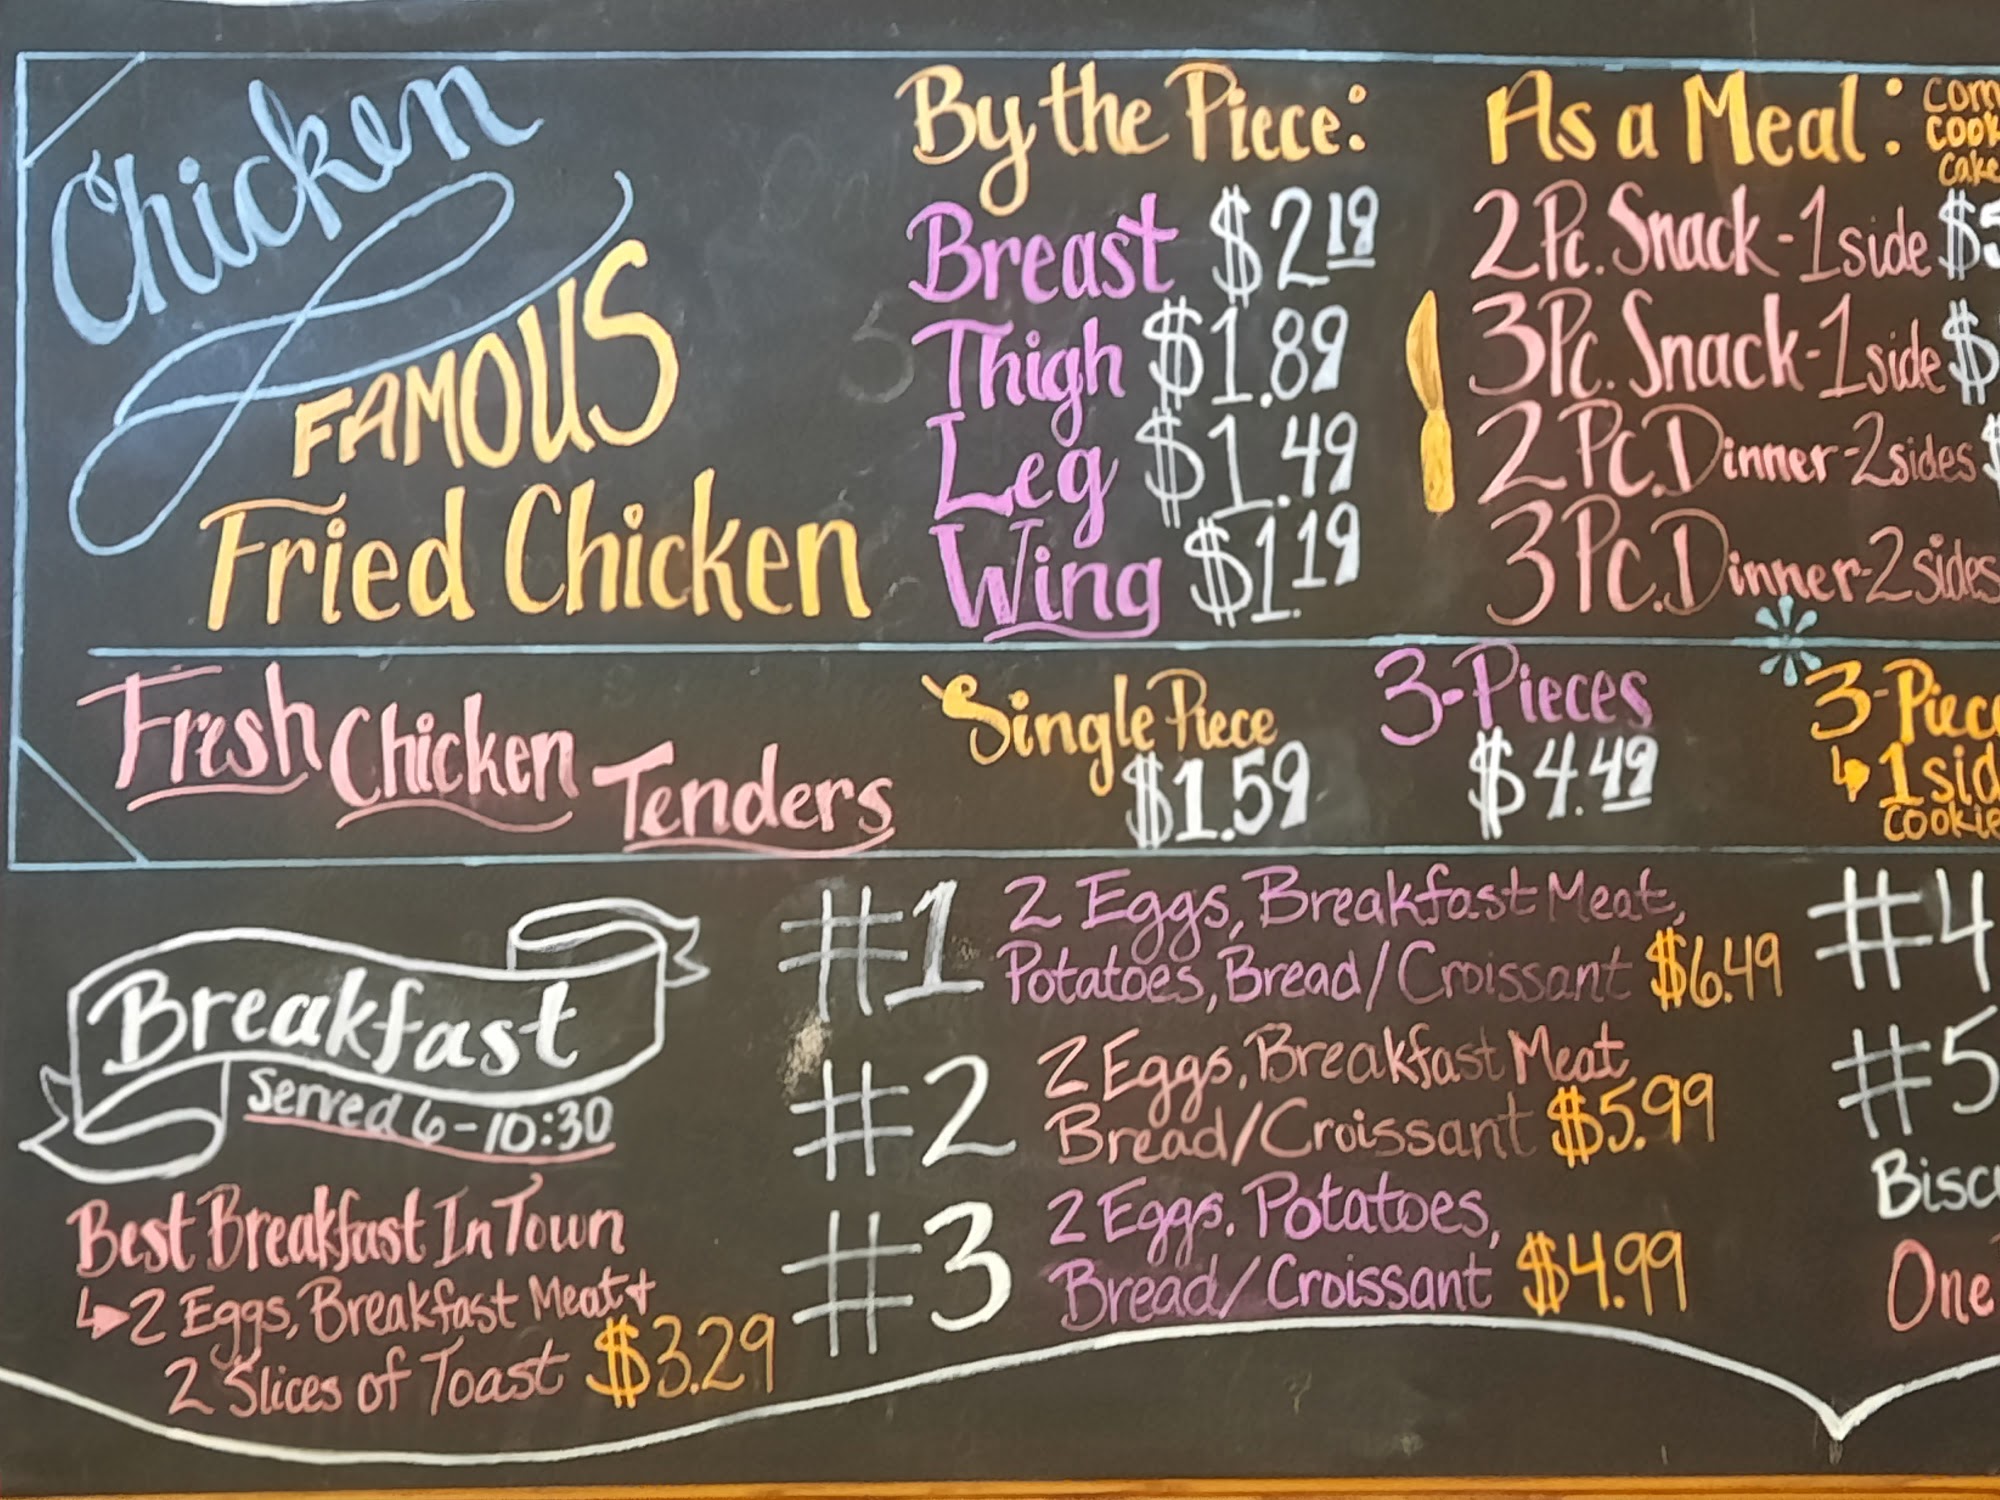 Chicken
FAMOUS
Fried Chicken
By the Piece:
Breast $2.19
Thigh $1.89
Leg $1.49
Wing $1.19
As a Meal:
2 Pc. Snack - 1 side
3 Pc. Snack - 1 side
2 Pc. Dinner - 2 sides
3 Pc. Dinner - 2 sides
Fresh Chicken Tenders
Single Piece
$1.59
3-Pieces
$4.49
3-Piec
1 sid
cookie
Breakfast
Served 6-10:30
Best Breakfast In Town
2 Eggs, Breakfast Meat +
2 Slices of Toast $3.29
#1 2 Eggs, Breakfast Meat,
Potatoes, Bread/Croissant $6.49
#2 2 Eggs, Breakfast Meat
Bread/Croissant $5.99
#3 2 Eggs, Potatoes,
Bread/Croissant $4.99
#4
#5
Bisc
One